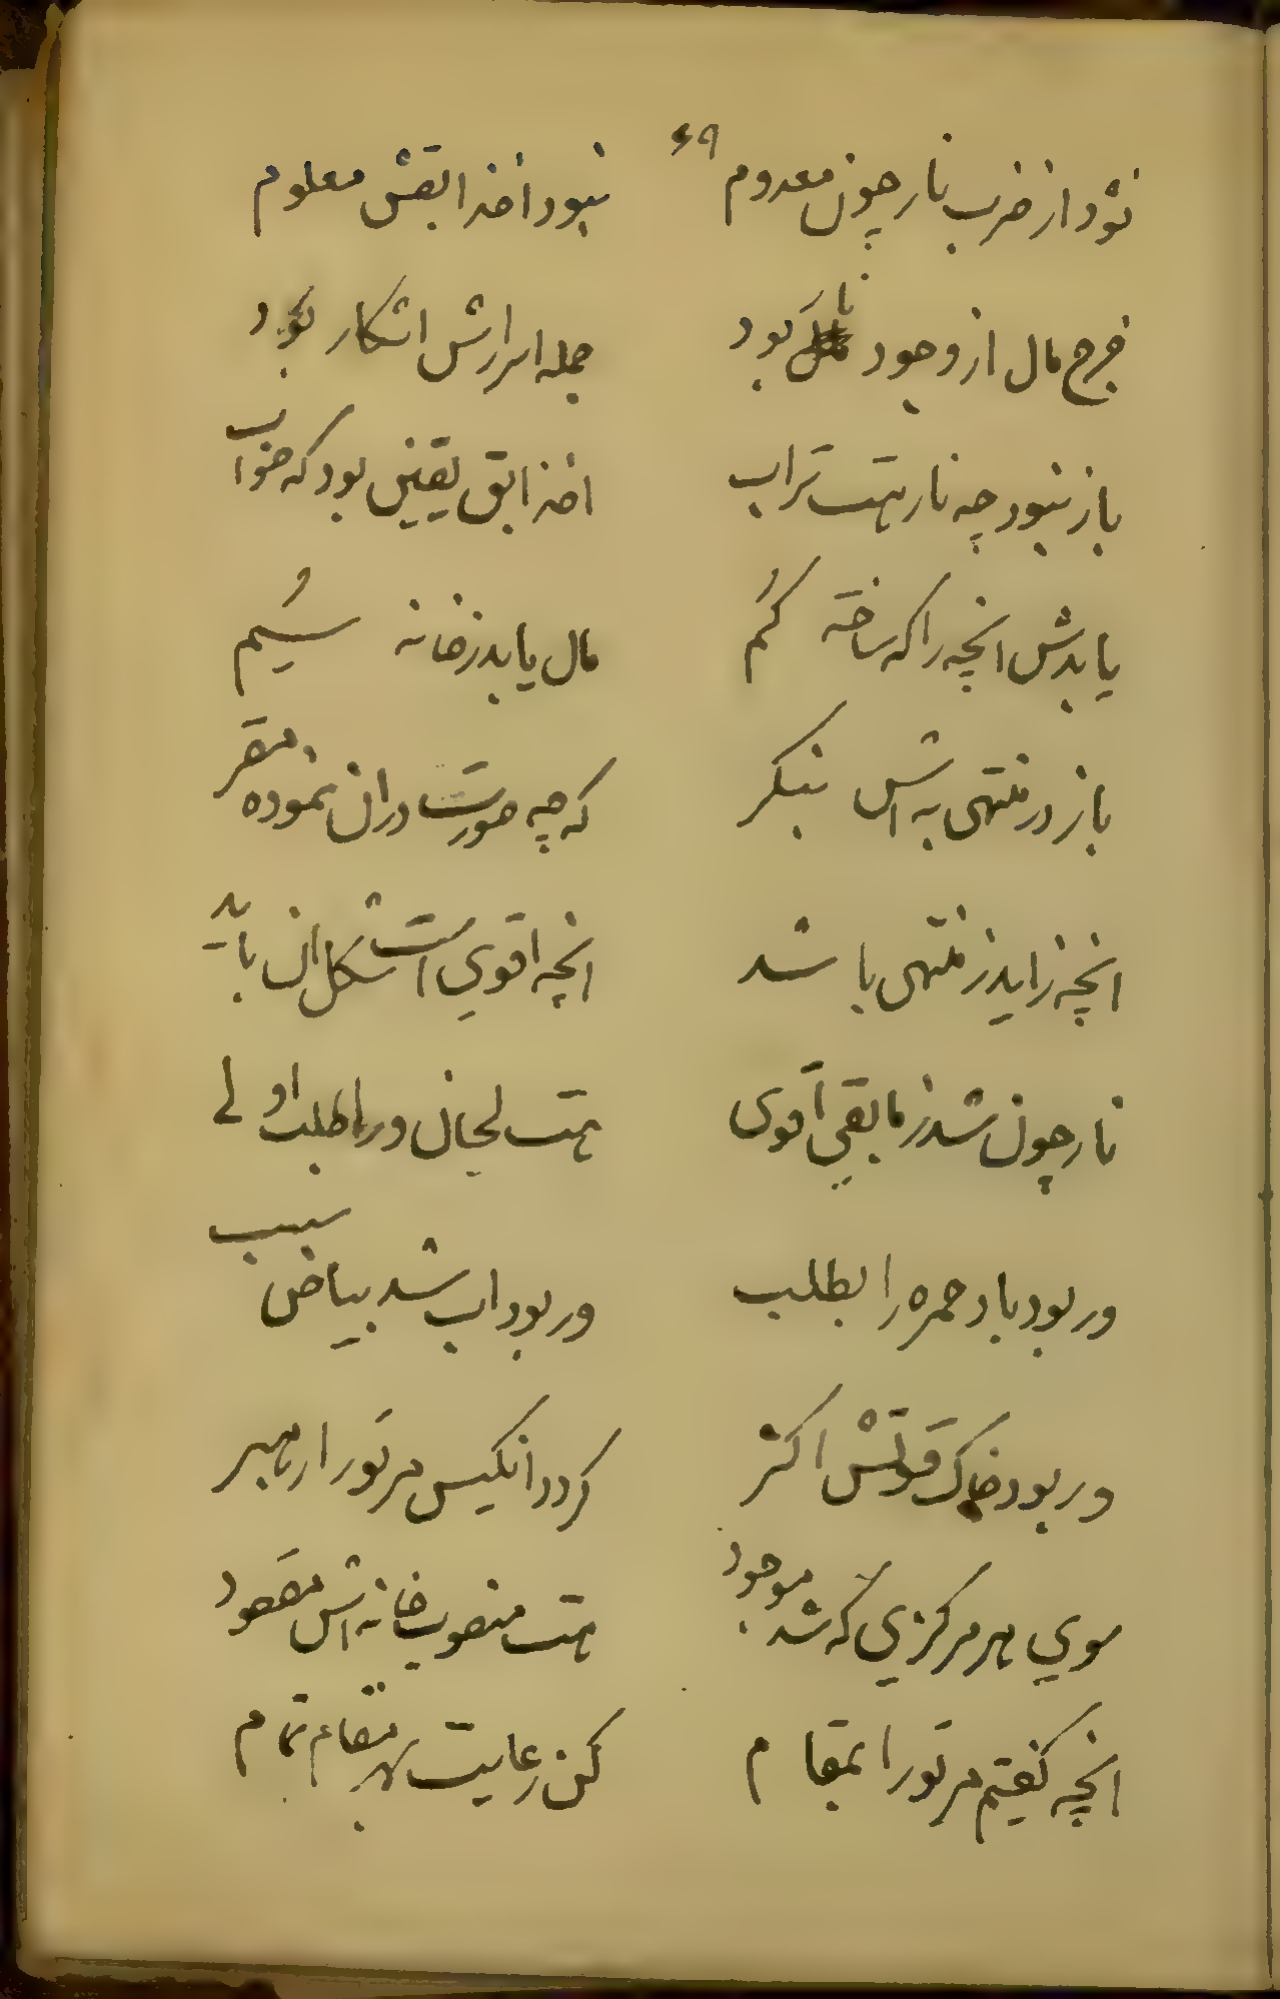 ۶۹
نشود از ضرب نار چون معدوم نبود اخذ ابقش معلوم
خرج مال از وجود نار بود جمله اسرارش اشکار بود
باز نبود چه نار هست تراب اخذ ابق یقین بود که خواب
یابدش انچه را که ساخته گم مال یابد ز خانه سیم
باز در منتهی به اتش بنکر که چه صورت دران نموده مقر
انچه زاید ز منتهی باشد انچه اقوی است شکل ان باید
نار چون شد ز مابقی اقوی هست لحیان ورا طلب اولی
ور بود باد حمره را بطلب ور بود اب شد بیاض سبب
ور بود خاک قوتش اکثر کردد انکیس مر تو را رهبر
سوی هر مرکزی که شد موجود هست منصوب خانه اش مقصود
انچه کفتم مر تو را بمقام کن رعایت بهر مقام تمام